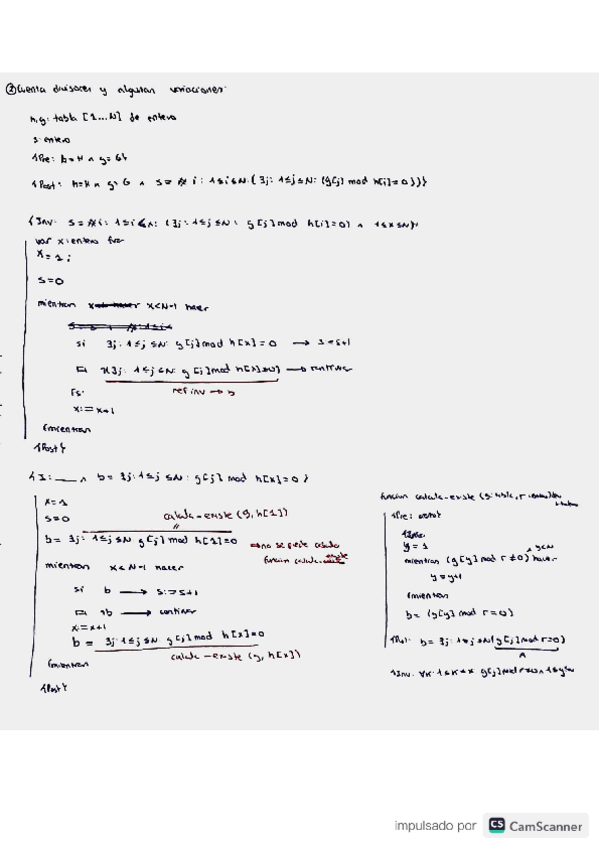 ② Cuenta divisores y algunas variaciones:
h,g: tabla [1...N] de entero
s: entero
{Pre: h=H ∧ g=G}
{Post: h=H ∧ g=G ∧ s= # i: 1≤i≤N: (∃j: 1≤j≤N: (g[j] mod h[i]=0))}
{Inv: s= # i: 1≤i<x: (∃j: 1≤j≤N: g[j] mod h[i]=0) ∧ 1≤x≤N}
var x: entero fvar
x=1;
s=0
mientras x<N-1 hacer
si ∃j: 1≤j≤N: g[j] mod h[x]=0 → s=s+1
[] ¬∃j: 1≤j≤N: g[j] mod h[x]=0 → continuar
ref inv → b
fsi
x:=x+1
fmientras
{Post}
{I: ___ ∧ b= ∃j: 1≤j≤N: g[j] mod h[x]=0}
x=1
s=0
calcula-existe (g, h[1])
b= ∃j: 1≤j≤N g[j] mod h[1]=0 ⇒ no se puede calcular
función calcula-existe
mientras x<N-1 hacer
si b → s:=s+1
[] ¬b → continuar
x:=x+1
b= ∃j: 1≤j≤N: g[j] mod h[x]=0
calcula-existe (g, h[x])
fmientras
{Post}
función calcula-existe (g: tabla, r
{Pre:
y=1
mientras (g[y] mod r ≠0) ∧ y<N hacer
y=y+1
fmientras
b= (g[y] mod r=0)
{Post: b= ∃j: 1≤j≤N (g[j] mod r=0)
{Inv: ∀k: 1≤k<